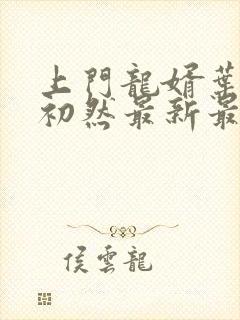 上門龍婿葉
初然最新最
侯雲龍